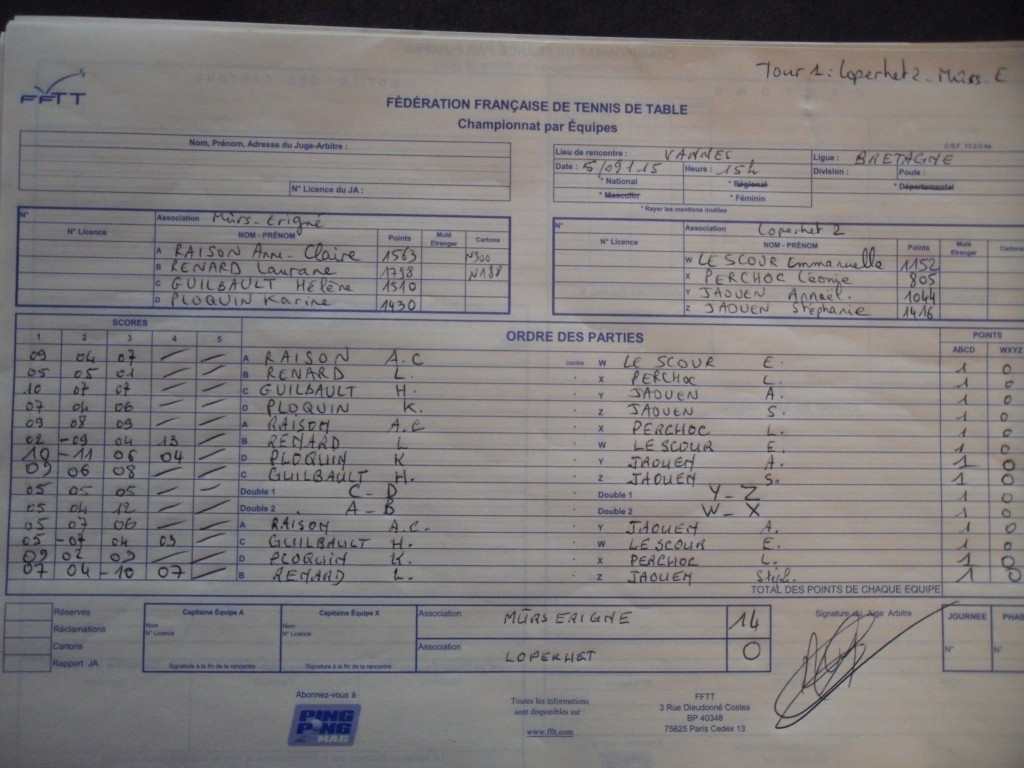 Tour 1 : Loperhet 2 - Mûrs. E
FFTT
FÉDÉRATION FRANÇAISE DE TENNIS DE TABLE
Championnat par Équipes
C.S.F. 13.2/3.4e
Nom, Prénom, Adresse du Juge-Arbitre :
N° Licence du JA :
Lieu de rencontre : VANNES Ligue : BRETAGNE
Date : 5/09/15 Heure : 15h Division : Poule :
* National * Régional * Départemental
* Masculin * Féminin
* Rayer les mentions inutiles
N° Association Mûrs-Erigné
N° Licence NOM - PRÉNOM Points Muté Etranger Cartons
A RAISON Anne-Claire 1563 N300
B RENARD Laurane 1798 N188
C GUILBAULT Hélène 1510
D PLOQUIN Karine 1430
N° Association Loperhet 2
N° Licence NOM - PRÉNOM Points Muté Etranger Cartons
W LE SCOUR Emmanuelle 1152
X PERCHOC Léonie 805
Y JAOUEN Annaël. 1044
Z JAOUEN Stéphanie 1416
SCORES ORDRE DES PARTIES POINTS
1 2 3 4 5 ABCD WXYZ
09 04 07 / / A RAISON A.C contre W LE SCOUR E. 1 0
05 05 01 / / B RENARD L. X PERCHOC L. 1 0
10 07 07 / / C GUILBAULT H. Y JAOUEN A. 1 0
07 04 06 / / D PLOQUIN K. Z JAOUEN S. 1 0
09 08 09 / / A RAISON A.C X PERCHOC L. 1 0
02 -09 04 13 / B RENARD L W LE SCOUR E. 1 0
10 -11 06 04 / D PLOQUIN K Y JAOUEN A. 1 0
09 06 08 / / C GUILBAULT H. Z JAOUEN S. 1 0
05 05 05 / / Double 1 C - D Double 1 Y - Z 1 0
05 04 12 / / Double 2 A - B Double 2 W - X 1 0
05 07 06 / / A RAISON A.C. Y JAOUEN A. 1 0
05 -07 04 03 / C GUILBAULT H. W LE SCOUR E. 1 0
09 02 03 / / D PLOQUIN K. X PERCHOC L. 1 0
07 04 -10 07 / B RENARD L. Z JAOUEN Stéph. 1 0
TOTAL DES POINTS DE CHAQUE EQUIPE
Réserves
Réclamations
Cartons
Rapport JA
Capitaine Équipe A
Nom
N° Licence
Signature à la fin de la rencontre
Capitaine Équipe X
Nom
N° Licence
Signature à la fin de la rencontre
Association MÛRS ERIGNE 14
Association LOPERHET 0
Signature du Juge Arbitre
JOURNEE PHAS
N° N°
Abonnez-vous à
PING PONG MAG
Toutes les informations
sont disponibles sur :
www.fftt.com
FFTT
3 Rue Dieudonné Costes
BP 40348
75625 Paris Cedex 13